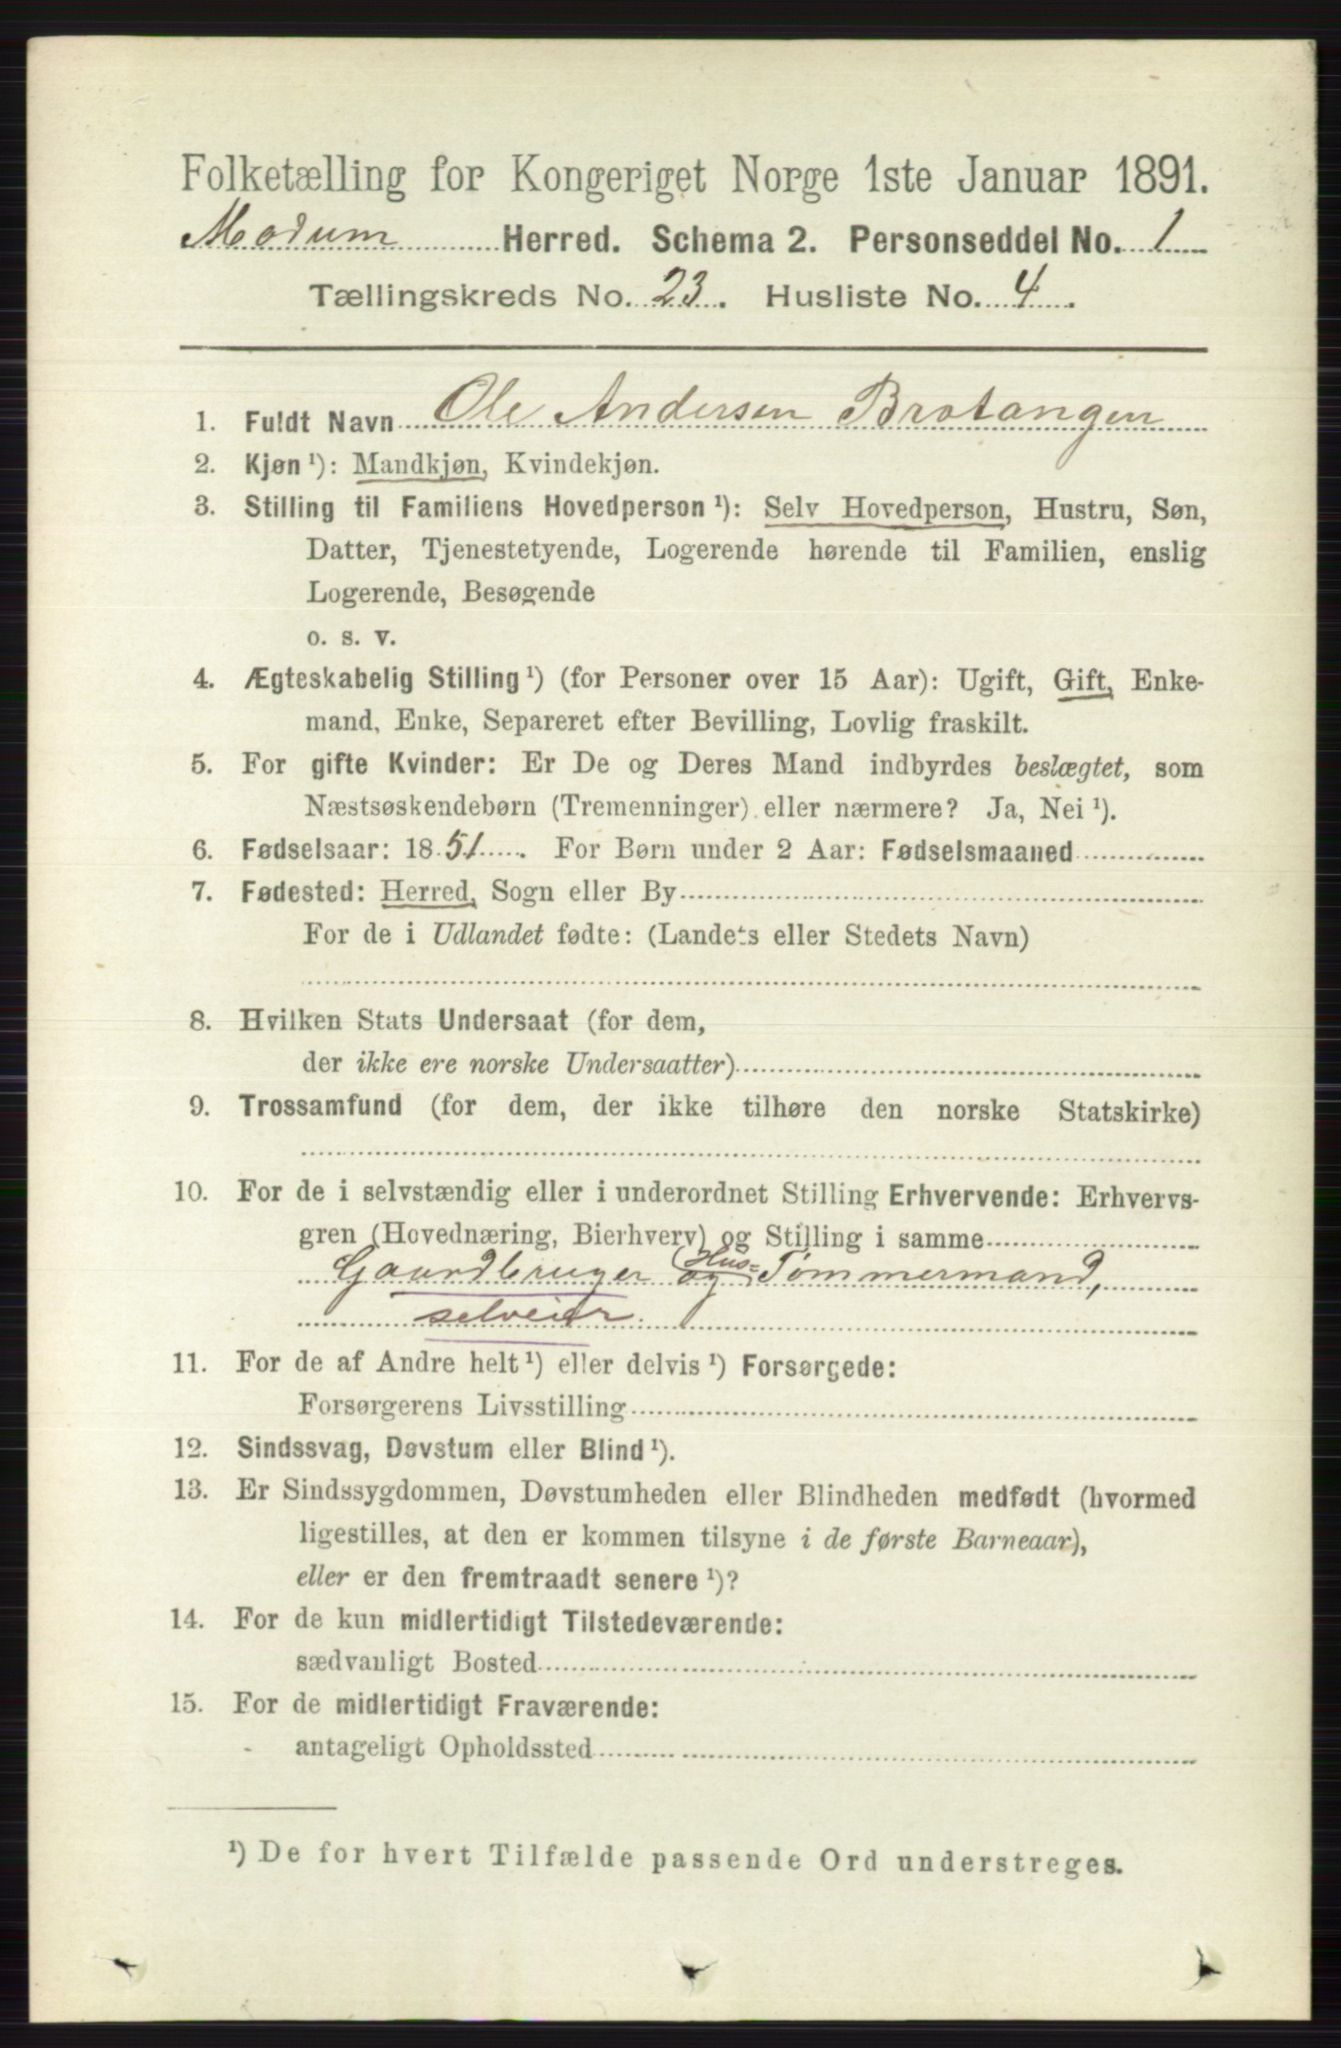 Folketælling for Kongeriget Norge 1ste Januar 1891.
Modum Herred. Schema 2. Personseddel No. 1
Tællingskreds No. 23. Husliste No. 4.
1. Fuldt Navn Ole Andersen Brotangen
2. Kjøn ¹): Mandkjøn, Kvindekjøn.
3. Stilling til Familiens Hovedperson ¹): Selv Hovedperson, Hustru, Søn,
Datter, Tjenestetyende, Logerende hørende til Familien, enslig
Logerende, Besøgende
o. s. v.
4. Ægteskabelig Stilling ¹) (for Personer over 15 Aar): Ugift, Gift, Enke-
mand, Enke, Separeret efter Bevilling, Lovlig fraskilt.
5. For gifte Kvinder: Er De og Deres Mand indbyrdes beslægtet, som
Næstsøskendebørn (Tremenninger) eller nærmere? Ja, Nei ¹).
6. Fødselsaar: 1851. For Børn under 2 Aar: Fødselsmaaned
7. Fødested: Herred, Sogn eller By
For de i Udlandet fødte: (Landets eller Stedets Navn)
8. Hvilken Stats Undersaat (for dem,
der ikke ere norske Undersaatter)
9. Trossamfund (for dem, der ikke tilhøre den norske Statskirke)
10. For de i selvstændig eller i underordnet Stilling Erhvervende: Erhvervs-
gren (Hovednæring, Bierhverv) og Stilling i samme
Hus=
Gaardbruger og Tømmermand,
selveier.
11. For de af Andre helt ¹) eller delvis ¹) Forsørgede:
Forsørgerens Livsstilling
12. Sindssvag, Døvstum eller Blind ¹).
13. Er Sindssygdommen, Døvstumheden eller Blindheden medfødt (hvormed
ligestilles, at den er kommen tilsyne i de første Barneaar),
eller er den fremtraadt senere ¹)?
14. For de kun midlertidigt Tilstedeværende:
sædvanligt Bosted
15. For de midlertidigt Fraværende:
antageligt Opholdssted
¹) De for hvert Tilfælde passende Ord understreges.